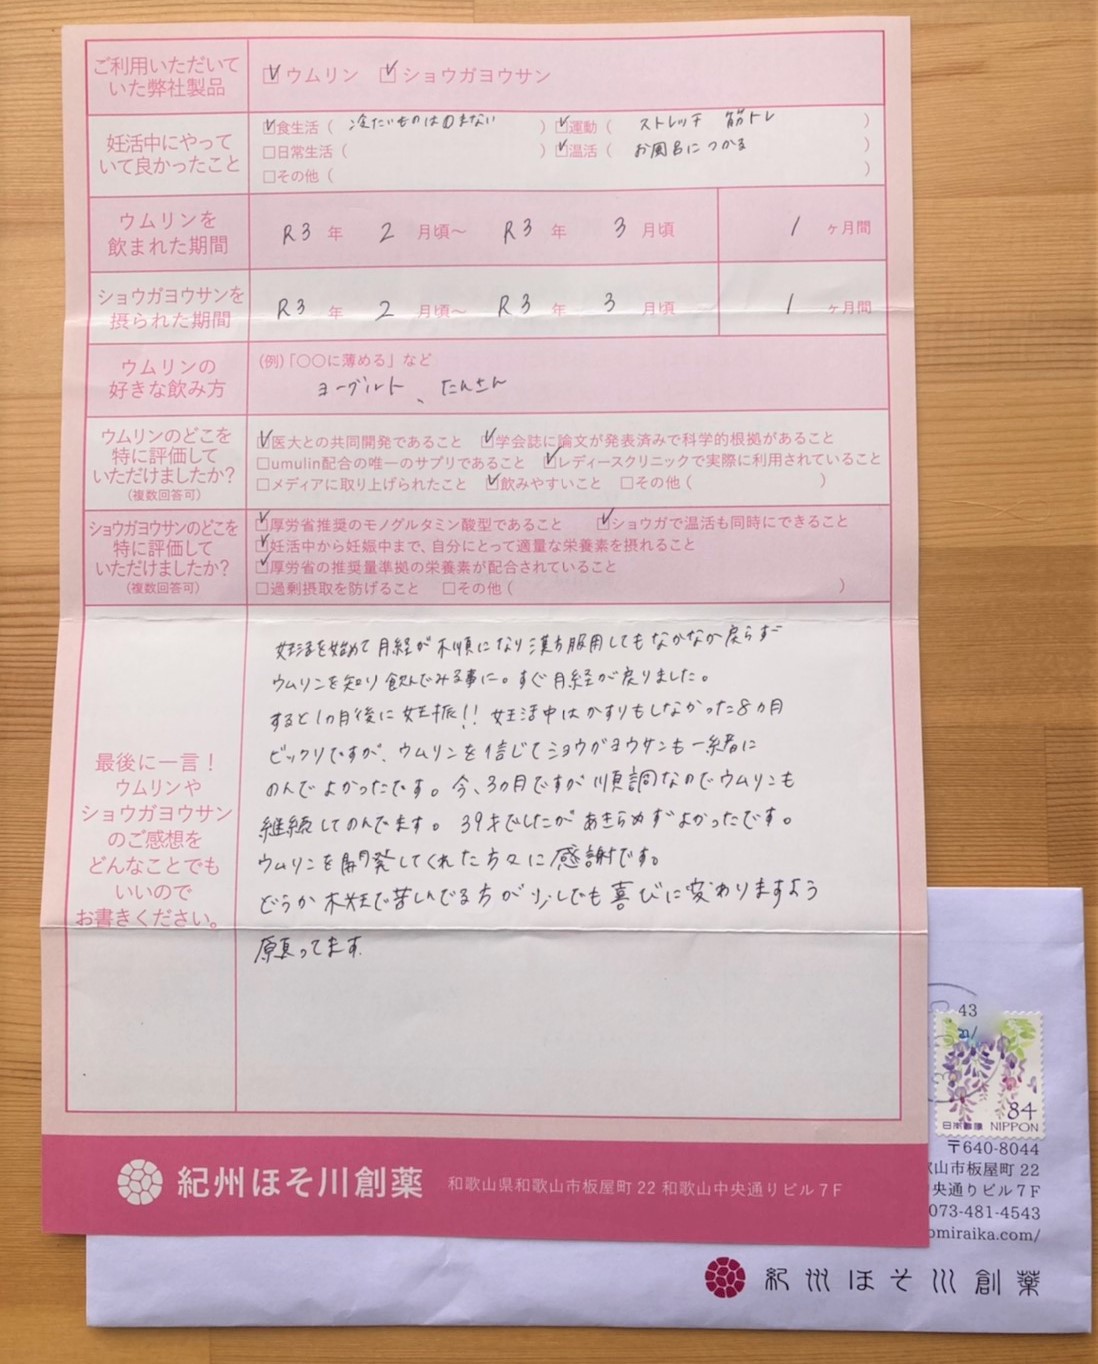 ご利用いただいて
いた弊社製品
☑ウムリン ☑ショウガヨウサン
妊活中にやって
いて良かったこと
☑食生活( 冷たいものはのまない )☑運動( ストレッチ 筋トレ )
☐日常生活( )☑温活( お風呂につかる )
☐その他( )
ウムリンを
飲まれた期間
R3年 2月頃〜 R3年 3月頃 1ヶ月間
ショウガヨウサンを
摂られた期間
R3年 2月頃〜 R3年 3月頃 1ヶ月間
ウムリンの
好きな飲み方
(例)「〇〇に薄める」など
ヨーグルト、たんさん
ウムリンのどこを
特に評価して
いただけましたか?
(複数回答可)
☑医大との共同開発であること ☑学会誌に論文が発表済みで科学的根拠があること
☐umulin配合の唯一のサプリであること ☑レディースクリニックで実際に利用されていること
☐メディアに取り上げられたこと ☑飲みやすいこと ☐その他( )
ショウガヨウサンのどこを
特に評価して
いただけましたか?
(複数回答可)
☑厚労省推奨のモノグルタミン酸型であること ☑ショウガで温活も同時にできること
☑妊活中から妊娠中まで、自分にとって適量な栄養素を摂れること
☑厚労省の推奨量準拠の栄養素が配合されていること
☐過剰摂取を防げること ☐その他( )
最後に一言!
ウムリンや
ショウガヨウサン
のご感想を
どんなことでも
いいので
お書きください。
妊活を始めて月経が不順になり漢方服用してもなかなか戻らず
ウムリンを知り飲んでみる事に。すぐ月経が戻りました。
すると1カ月後に妊娠!! 妊活中はかすりもしなかった8カ月
ビックリですが、ウムリンを信じてショウガヨウサンも一緒に
のんでよかったです。今、3カ月ですが順調なのでウムリンも
継続してのんでます。39才でしたがあきらめずよかったです。
ウムリンを開発してくれた方々に感謝です。
どうか不妊で苦しんでる方が少しでも喜びに変わりますよう
願ってます.
紀州ほそ川創薬 和歌山県和歌山市板屋町22 和歌山中央通りビル7F
43
84
日本郵便 NIPPON
〒640-8044
歌山市板屋町 22
央通りビル7F
073-481-4543
omiraika.com/
紀州ほそ川創薬